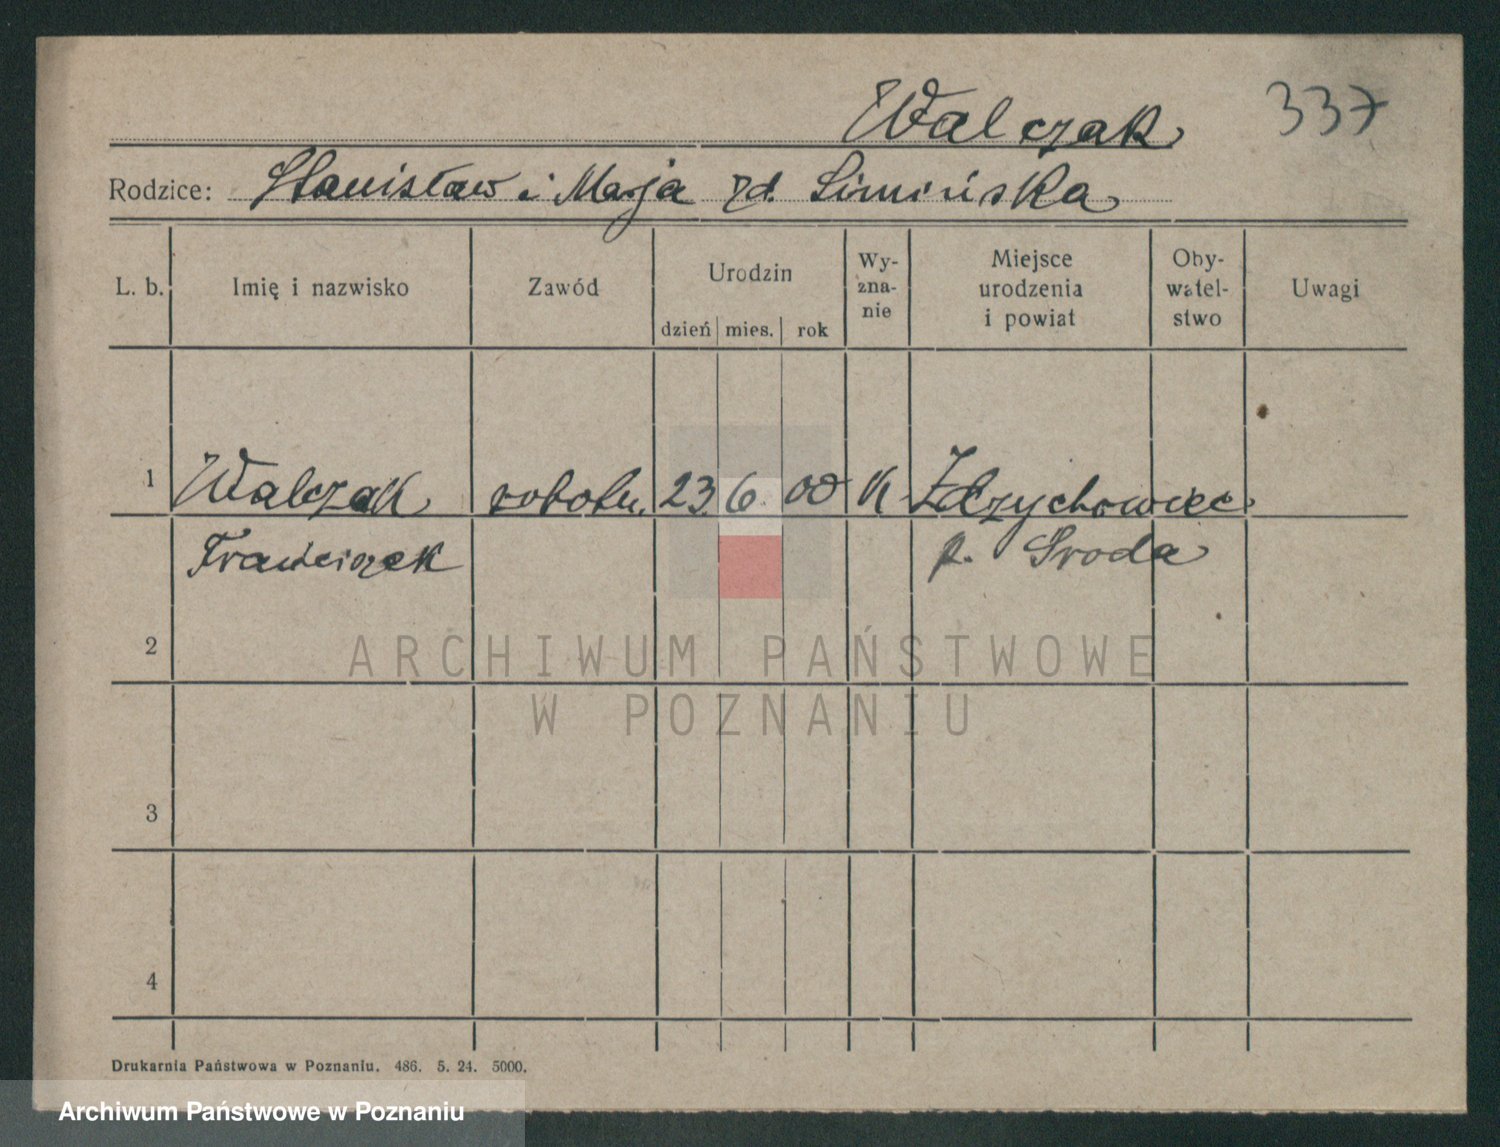 Walczak 337
Rodzice: Stanisław i Marja zd. Simińska
L. b. Imię i nazwisko Zawód Urodzin dzień mies. rok Wy-zna-nie Miejsce urodzenia i powiat Oby-watel-stwo Uwagi
1 Walczak robotn. 23. 6. 00 K Zdzychowice
Franciszek p. Sroda
2
ARCHIWUM PAŃSTWOWE
W POZNANIU
3
4
Drukarnia Państwowa w Poznaniu. 486. 5. 24. 5000.
Archiwum Państwowe w Poznaniu